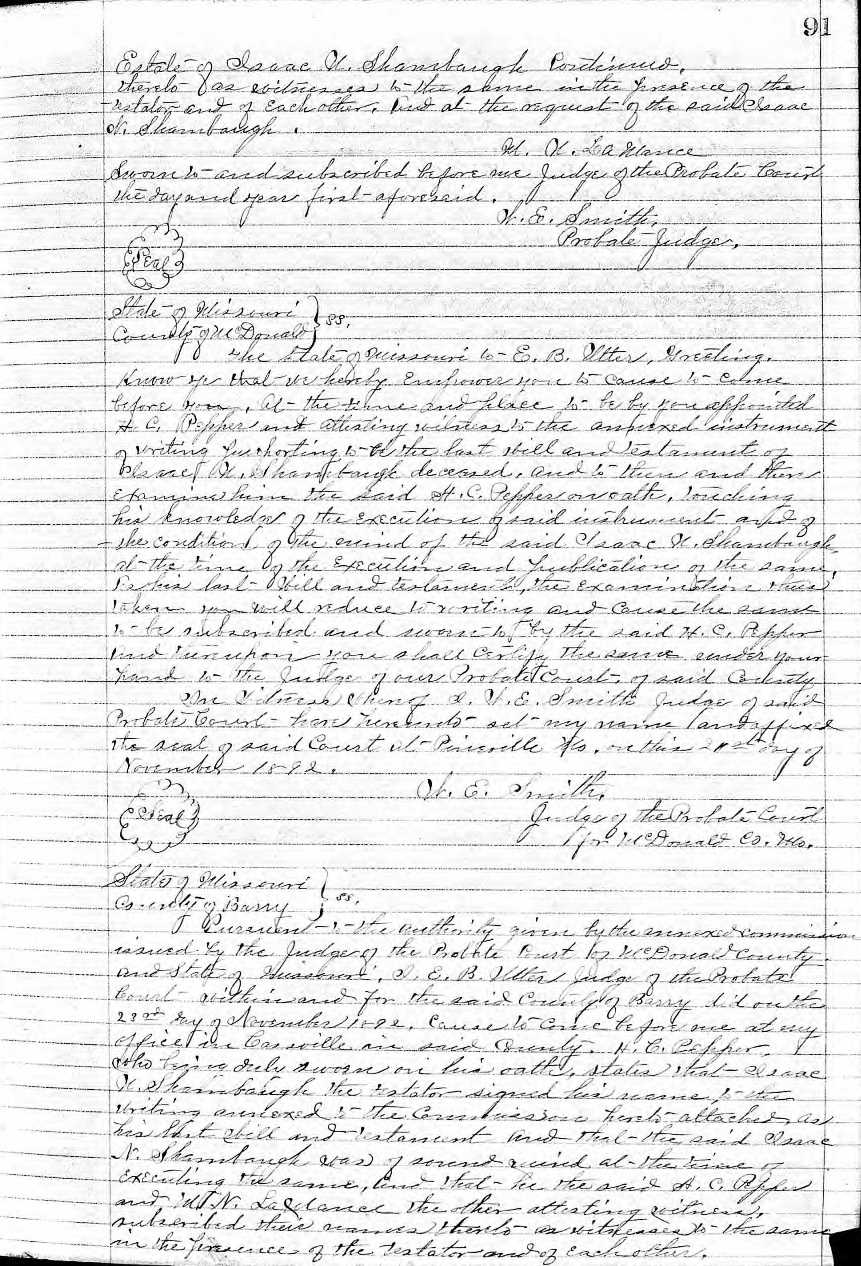 91
Estate of Isaac N. Shambaugh Continued.
thereto as witnesses to the same in the presence of the
testator and of each other. And at the request of the said Isaac
N. Shambaugh.
M. N. LaMance
Sworn to and subscribed before me Judge of the Probate Court
the day and year first aforesaid.
W. E. Smith,
Probate Judge.
Seal
State of Missouri
County of McDonald } ss.
The State of Missouri to E. B. Utter, Greeting.
Know ye that we hereby Empower you to cause to come
before you, at the time and place to be by you appointed
H. C. Pepper attesting witness to the annexed instrument
of writing purporting to be the last will and testament of
Isaac N. Shambaugh deceased, and to then and there
examine him the said H. C. Pepper on oath, touching
his knowledge of the execution of said instrument and of
the condition of the mind of the said Isaac N. Shambaugh
at the time of the Execution and publication of the same,
his last Will and testament, the examination thus
taken you will reduce to writing and cause the same
to be subscribed and sworn to by the said H. C. Pepper
and thereupon you shall certify the same under your
hand to the Judge of our Probate Court, of said County
In Witness Whereof I, W. E. Smith Judge of said
Probate Court have hereunto set my name and affixed
the seal of said Court at Pineville Mo. on this 21st day of
November 1892.
W. E. Smith,
Judge of the Probate Court
for McDonald Co. Mo.
Seal
State of Missouri
County of Barry } ss.
Pursuant to the authority given by the annexed commission
issued by the Judge of the Probate Court of McDonald County
and State of Missouri, I, E. B. Utter Judge of the Probate
Court within and for the said County of Barry did on the
23rd day of November 1892, cause to come before me at my
office in Cassville in said County. H. C. Pepper,
who being duly sworn on his oath, states that Isaac
N. Shambaugh the testator signed his name to the
writing annexed to the Commission hereto attached as
his last Will and testament and that the said Isaac
N. Shambaugh was of sound mind at the time of
executing the same, and that he the said H. C. Pepper
and M. N. LaMance the other attesting witness,
subscribed their names thereto as witnesses to the same
in the presence of the testator and of each other.